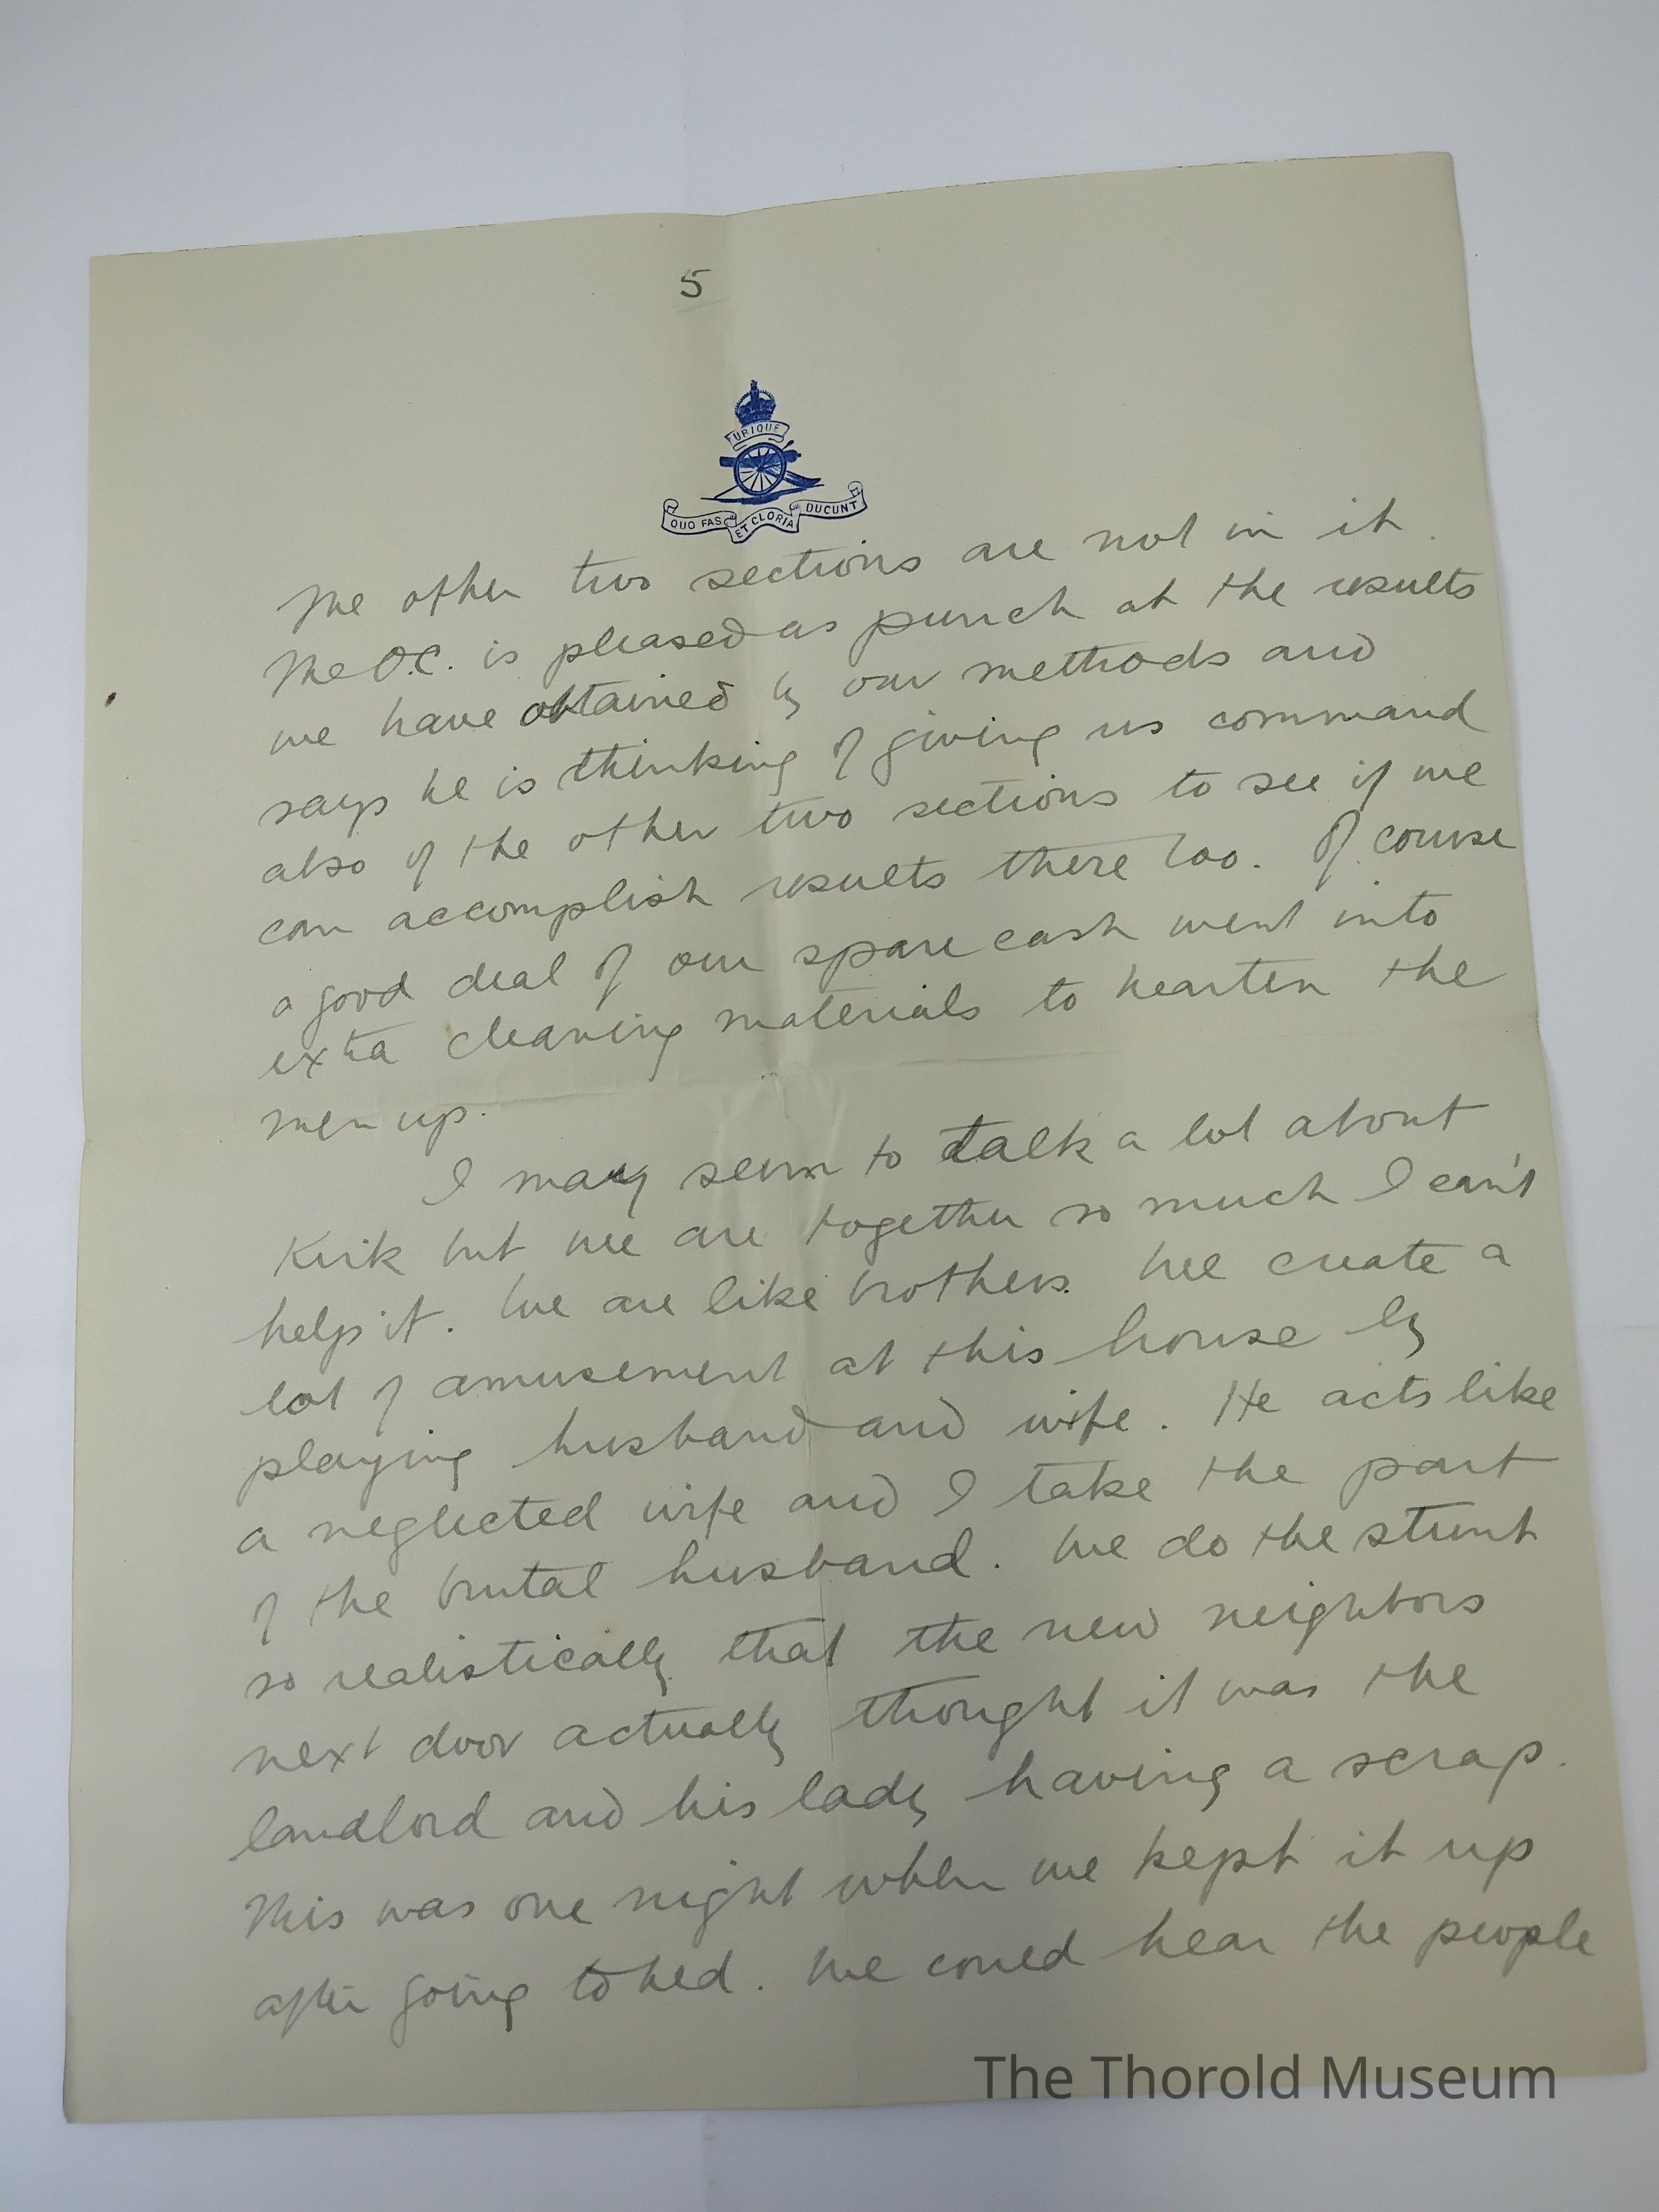 5
UBIQUE
QUO FAS ET GLORIA DUCUNT
The other two sections are not in it.
The O.C. is pleased as punch at the results
we have obtained by our methods and
says he is thinking of giving us command
also of the other two sections to see if we
can accomplish results there too. Of course
a good deal of our spare cash went into
exta cleaning materials to hearten the
men up.
I may seem to talk a lot about
Kirk but we are together so much I can't
help it. We are like brothers. We create a
lot of amusement at this house by
playing husband and wife. He acts like
a neglected wife and I take the part
of the brutal husband. We do the stunt
so realistically that the new neighbors
next door actually thought it was the
landlord and his lady having a scrap.
This was one night when we kept it up
after going to bed. We could hear the people
The Thorold Museum